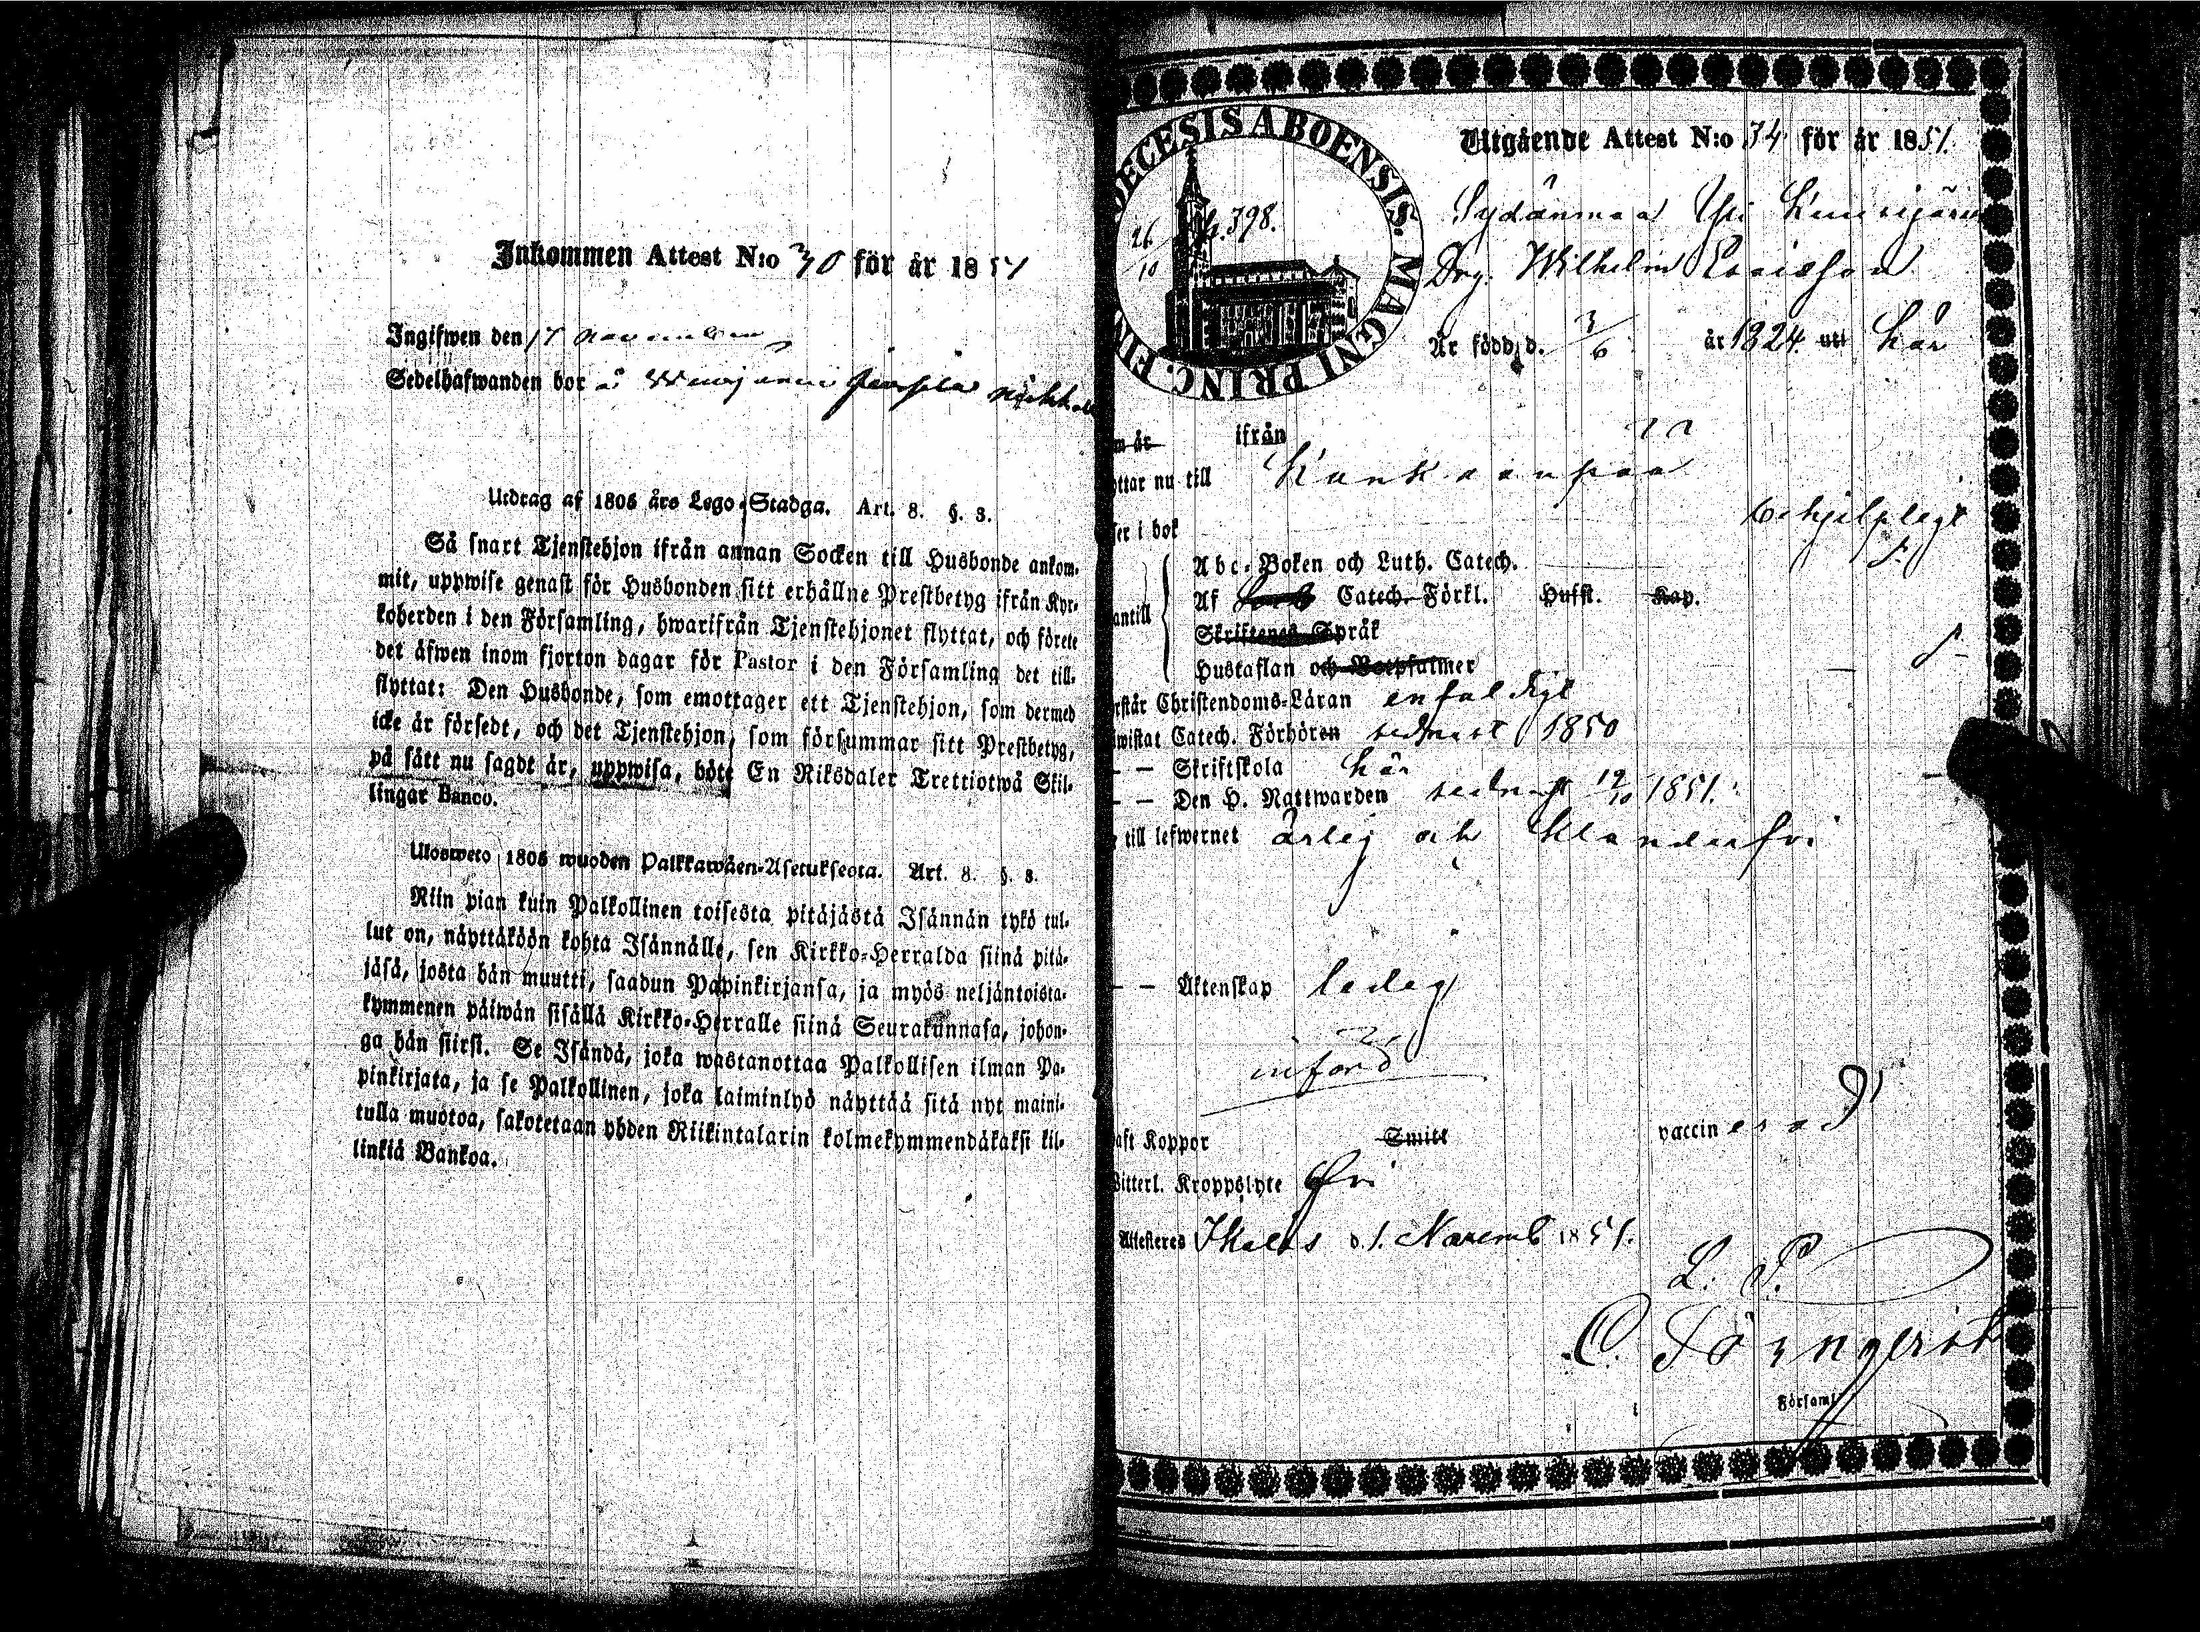 Inkommen Attest N:o 30 för år 1851
Ingifwen den 17 november
Sedelhafwanden bor å
Utdrag af 1805 års Lego-Stadga. Art. 8. §. 3.
Så snart Tjenstehjon ifrån annan Socken till Husbonde ankom-
mit, uppwise genast för Husbonden sitt erhållne Prestbetyg ifrån Kyr-
koherden i den Församling, hwarifrån Tjenstehjonet flyttat, och förete
det äfwen inom fjorton dagar för Pastor i den Församling det till-
flyttat: Den Husbonde, som emottager ett Tjenstehjon, som dermed
icke är försedt, och det Tjenstehjon, som försummar sitt Prestbetyg,
på sätt nu sagdt är, uppwisa, böte En Riksdaler Trettiotwå Skil-
lingar Banco.
Ulosweto 1805 wuoden Palkkawäen-Asetuksesta. Art. 8. §. 3.
Niin pian kuin Palkollinen toisesta pitäjästä Isännän tykö tul-
lut on, näyttäköön kohta Isännälle, sen Kirkko-Herralda siinä pitä-
jäsä, josta hän muutti, saadun Papinkirjansa, ja myös neljäntoista-
kymmenen päiwän sisällä Kirkko-Herralle siinä Seurakunnasa, johon-
ga hän siirsi. Se Isändä, joka wastanottaa Palkollisen ilman Pa-
pinkirjata, ja se Palkollinen, joka laiminlyö näyttää sitä nyt maini-
tulla muotoa, sakotetaan yhden Riikintalarin kolmekymmendäkaksi kil-
linkiä Bankoa.
DECESIS ABOENSIS. MAGNI PRINC. FIN
26/10 p. 398.
Utgående Attest N:o 34 för år 1851.
Sydänmaa
Drg. Wilhelm Ericsson
Är född, d. 3/6 år 1824. uti här
m år ifrån
ottar nu till Kankaanpää
ser i bok behjelpligt
Abc-Boken och Luth. Catech.
antill Af Catech. Förkl. Husst. Kap.
Skriftenes Språk
Hustaflan och Botpsalmer
rstår Christendoms-Läran enfaldigt
wistat Catech. Förhören sednast 1850
— — Skriftskola här
— — Den H. Nattwarden sednast 19/10 1851.
till lefwernet ärlig och klanderfri
— — Äktenskap ledig
införd
aft Koppor Smitt vaccinerad
Witterl. Kroppslyte fri
Attesteras Ikalis d. 1. Novemb 1851.
L. P.
C. Törnqvist
Församl.